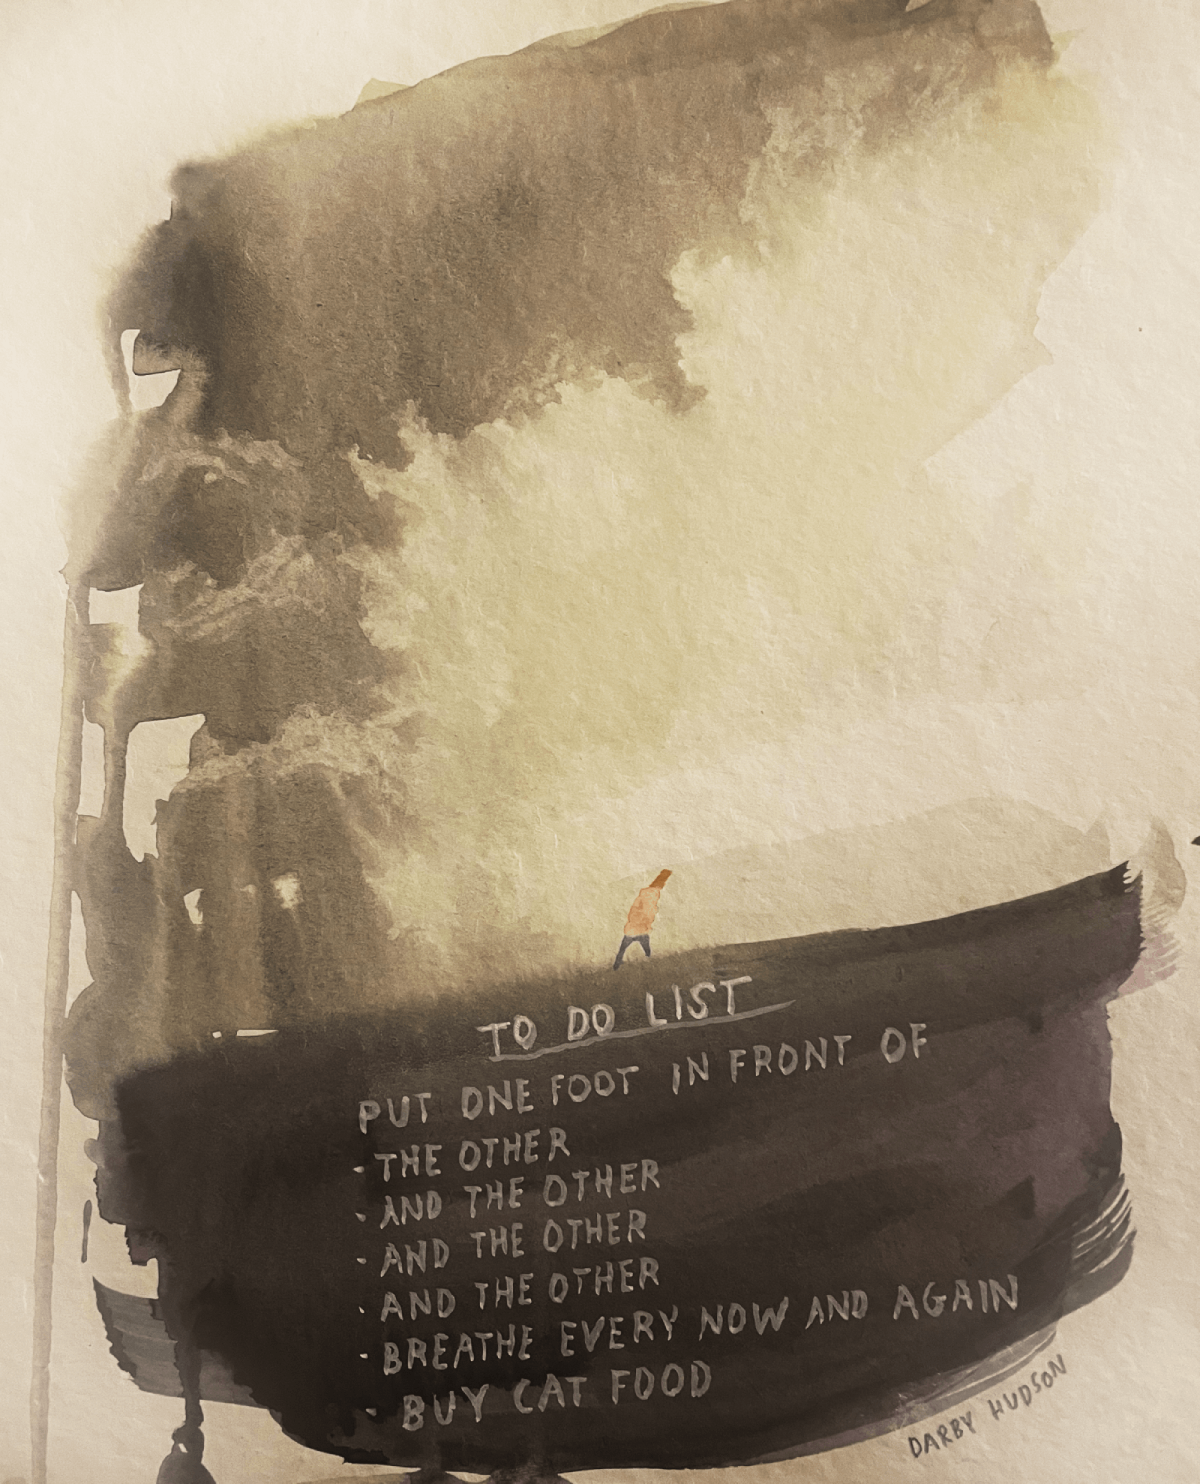 TO DO LIST
PUT ONE FOOT IN FRONT OF
- THE OTHER
- AND THE OTHER
- AND THE OTHER
- AND THE OTHER
- BREATHE EVERY NOW AND AGAIN
- BUY CAT FOOD
DARBY HUDSON